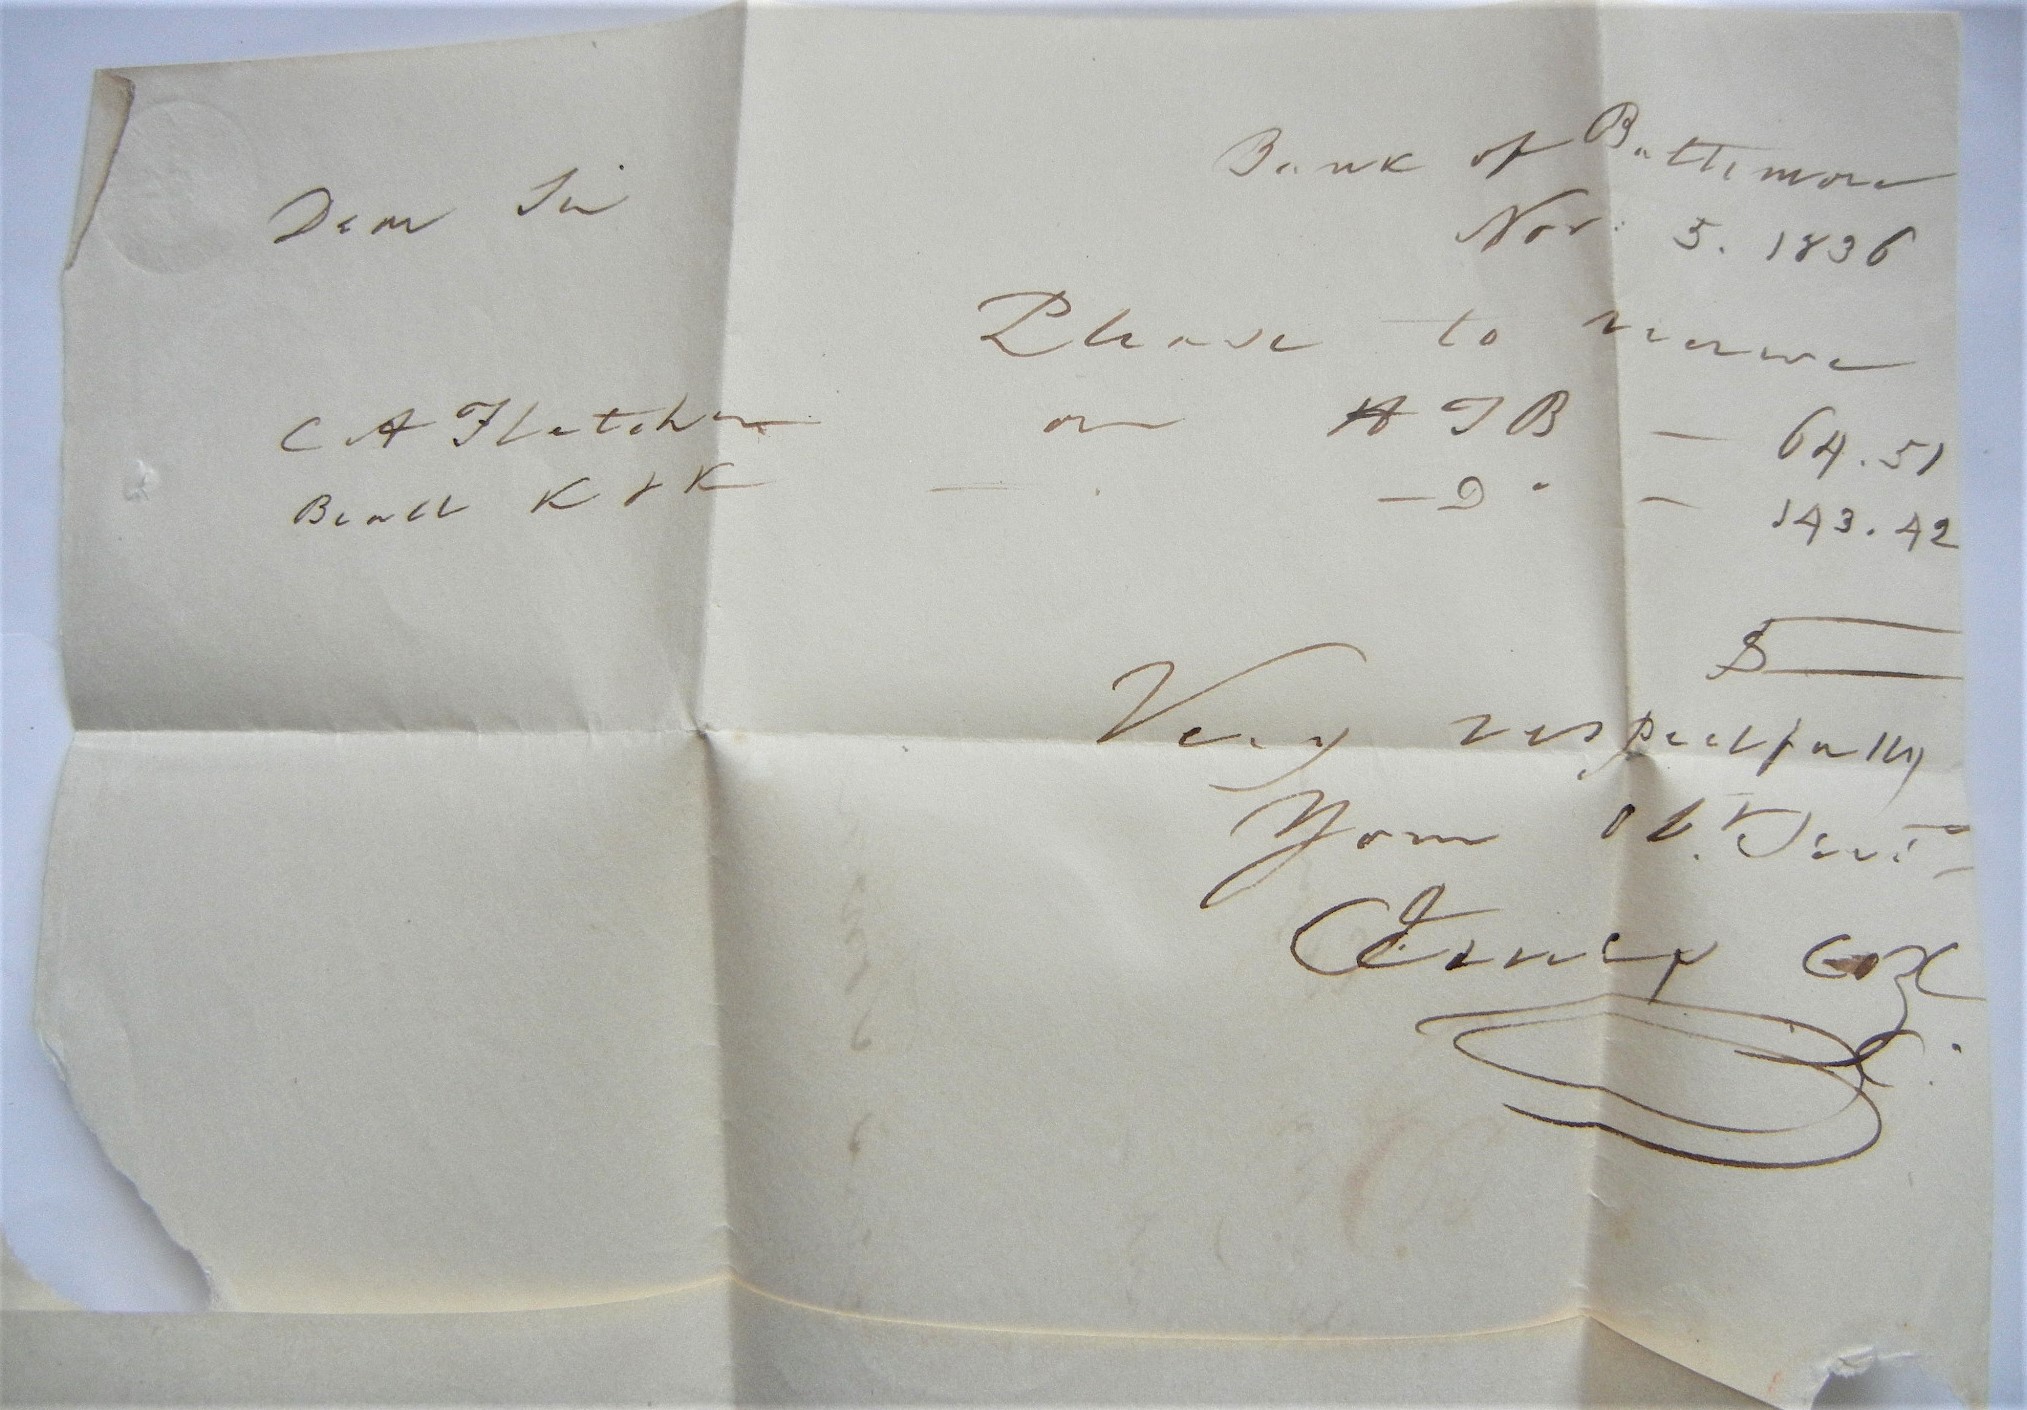 Bank of Baltimore
Nov. 5. 1836
Dear Sir
Please to receive
C A Fletcher on H T B — 64.51
Beall K & K — — Do — 143.42
$
Very respectfully
Your Obt. Servt
Cox
C.